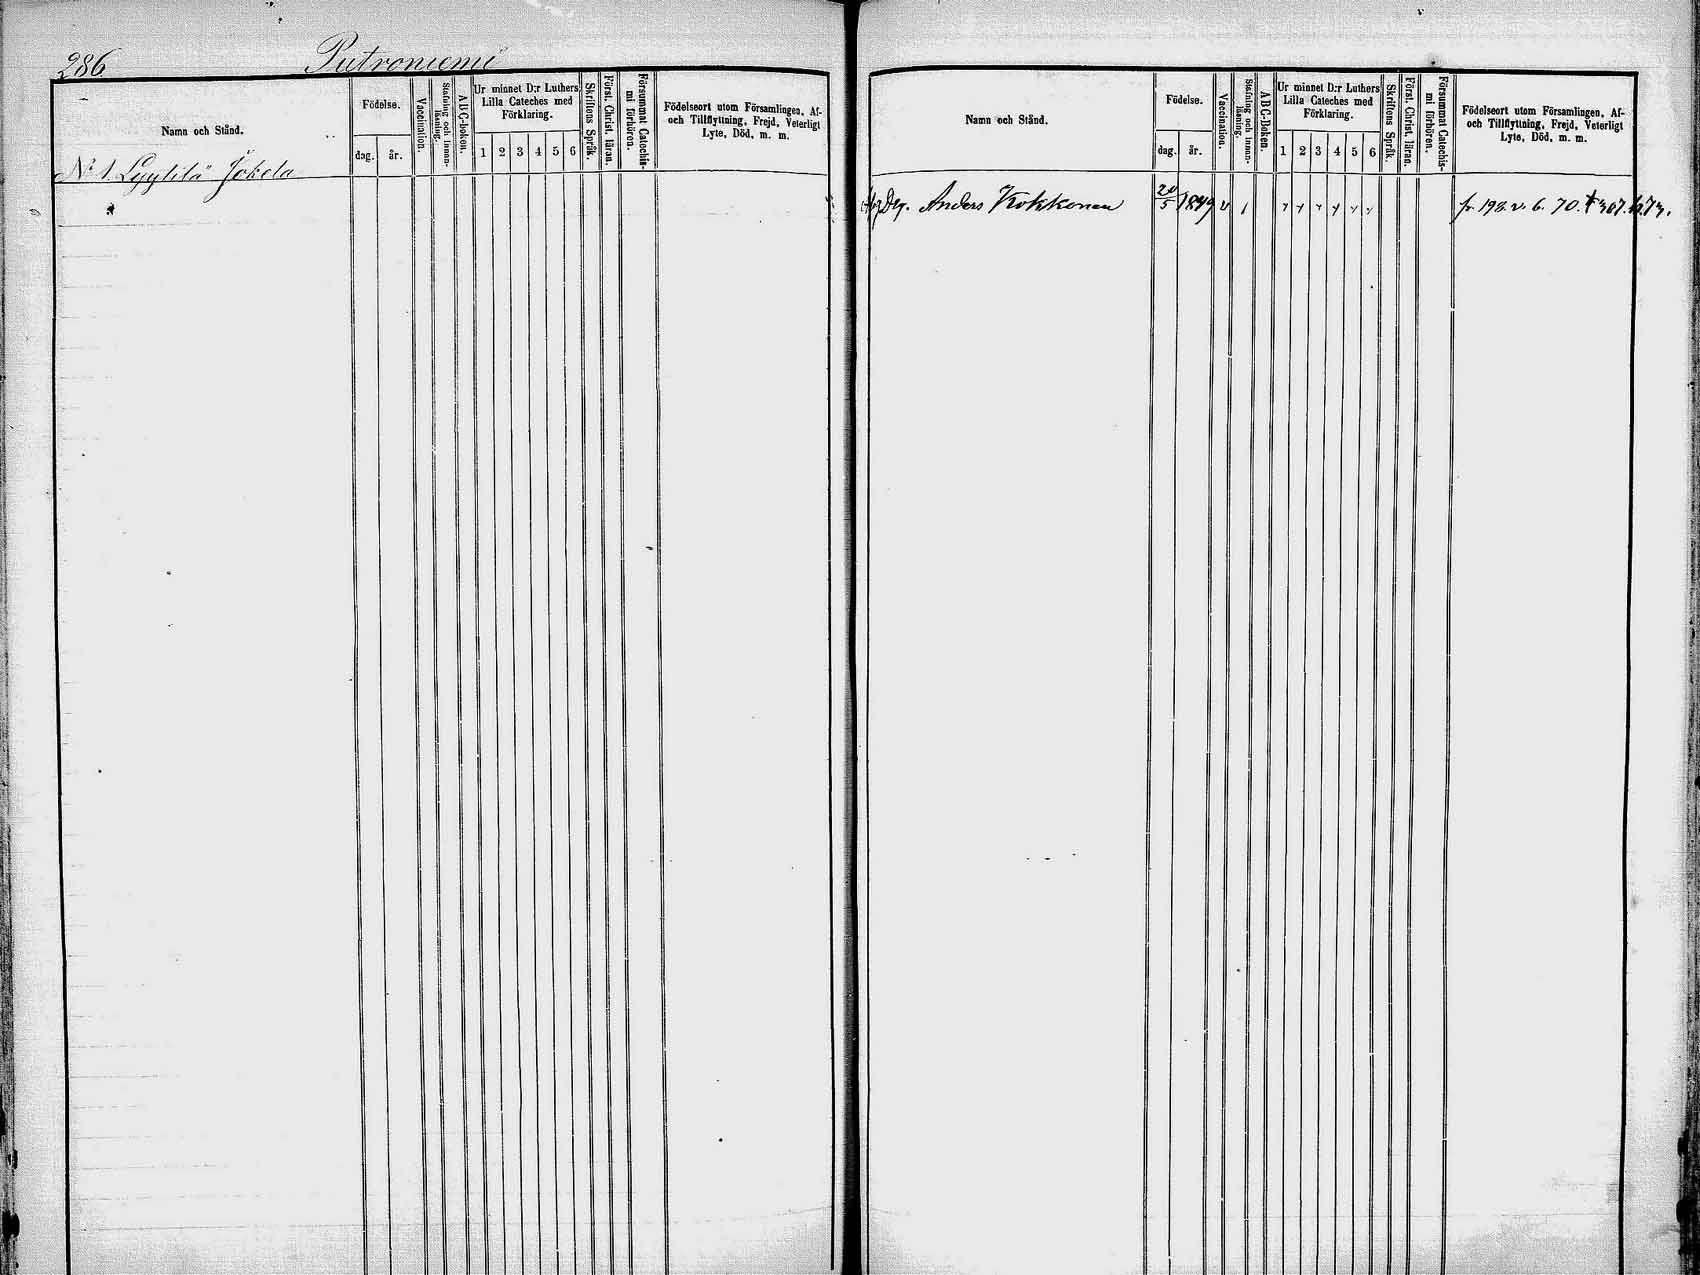 286 Putroniemi
Namn och Stånd.
Födelse.
dag. år.
Vaccination.
Stafning och Innan-
läsning.
ABC-boken.
Ur minnet D:r Luthers
Lilla Cateches med
Förklaring.
1 2 3 4 5 6
Skriftens Språk.
Först. Christ. läran.
Försummat Catechis-
mi förhören.
Födelseort utom Församlingen, Af-
och Tillflyttning, Frejd, Veterligt
Lyte, Död, m. m.
N:o 1. Lyytilä Jokela
Namn och Stånd.
Födelse.
dag. år.
Vaccination.
Stafning och Innan-
läsning.
ABC-Boken.
Ur minnet D:r Luthers
Lilla Cateches med
Förklaring.
1 2 3 4 5 6
Skriftens Språk.
Först. Christ. läran.
Försummat Catechis-
mi förhören.
Födelseort utom Församlingen, Af-
och Tillflyttning, Frejd, Veterligt
Lyte, Död, m. m.
Dg. Anders Kokkonen 20/5 1849 v 1 fr. 198. v. 6. 70.